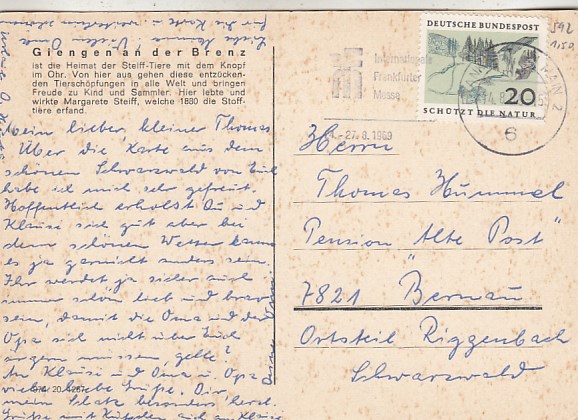 Giengen an der Brenz
ist die Heimat der Steiff-Tiere mit dem Knopf
im Ohr. Von hier aus gehen diese entzücken-
den Tierschöpfungen in alle Welt und bringen
Freude zu Kind und Sammler. Hier lebte und
wirkte Margarete Steiff, welche 1880 die Stoff-
tiere erfand.
Mein lieber, kleiner Thomas
Über die Karte aus dem
schönen Schwarzwald von Euch
habe ich mich sehr gefreut.
Hoffentlich erholst Du und
Klausi sich gut aber bei
dem schönen Wetter kann
es ja garnicht anders sein.
Ihr werdet ja sicher auch
immer schön lieb und brav
sein, damit die Oma und der
Opa sich nicht über Euch
ärgern müssen, gelle?
An Klausi und Oma u. Opa
viele liebe Grüße. Dir,
mein Schatz besonders herzl.
Grüße mit
für die Karte u.
Liebe Vielen
DEUTSCHE BUNDESPOST
20
SCHÜTZT DIE NATUR
Internationale
Frankfurter
Messe
-27. 8. 1969
2
6
592
1,50
Herrn
Thomas Hummel
Pension "Alte Post"
7821 Bernau
Ortsteil Riggenbach
Schwarzwald